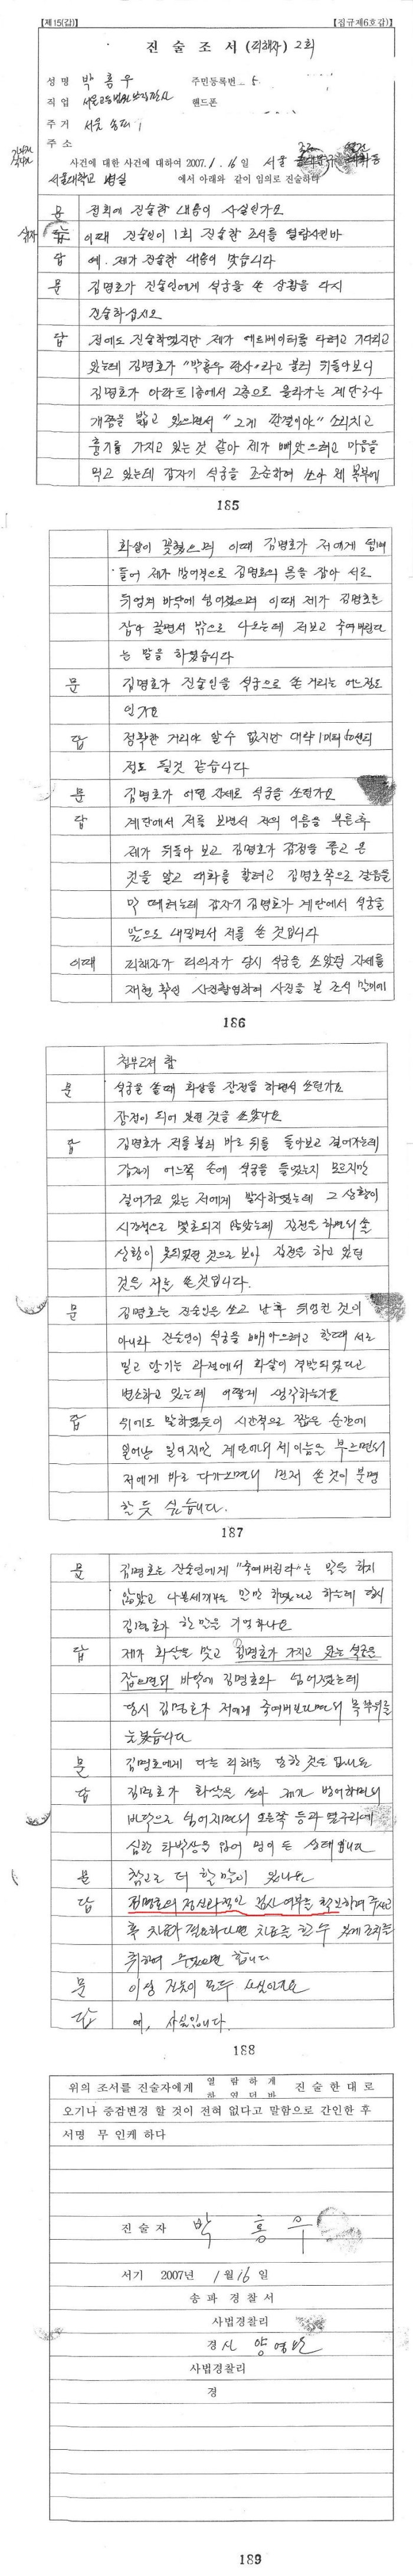 [제15(갑)]
[집규제6호갑]
진 술 조 서 (피해자) 2회
성 명 박 홍 우 주민등록번 5
직 업 서울고등법원 부장판사 핸드폰
주 거 서울 송파
주 소
사건에 대한 사건에 대하여 2007. 1. 16 일 서울
서울대학교 병실 에서 아래와 같이 임의로 진술하다
문 전회에 진술한 내용이 사실인가요
이때 진술인이 1회 진술한 조서를 열람시킨바
답 예. 제가 진술한 내용이 맞습니다
문 김명호가 진술인에게 석궁을 쏜 상황을 다시
진술하십시오
답 전에도 진술하였지만 제가 에르베이터를 타려고 기다리고
있는데 김명호가 "박홍우 판사"라고 불러 뒤돌아보니
김명호가 아파트 1층에서 2층으로 올라가는 계단 3-4
개쯤을 밟고 있으면서 "그게 판결이야" 소리치고
흉기를 가지고 있는 것 같아 제가 빼앗으려고 마음을
먹고 있는데 갑자기 석궁을 조준하여 쏘아 제 복부에
185
화살이 꽂혔으며 이때 김명호가 저에게 덤벼
들어 제가 방어적으로 김명호의 몸을 잡아 서로
뒤엉켜 바닥에 넘어졌으며 이때 제가 김명호를
잡아 끌면서 밖으로 나오는데 저보고 죽여버린다
는 말을 하였습니다
문 김명호가 진술인을 석궁으로 쏜 거리는 어느정도
인가요
답 정확한 거리야 알수 없지만 대략 1미터 50센티
정도 될것 같습니다
문 김명호가 어떤 자세로 석궁을 쏘던가요
답 계단에서 저를 보면서 저의 이름을 부른후
제가 뒤돌아 보고 김명호가 감정을 품고 온
것을 알고 대화를 할려고 김명호쪽으로 걸음을
막 떼려는데 갑자기 김명호가 계단에서 석궁을
앞으로 내밀면서 저를 쏜 것입니다
이때 피해자가 피의자가 당시 석궁을 쏘았던 자세를
재현 확인 사진촬영하여 사진을 본 조서 말미에
186
첨부고저 함
문 석궁을 쏠때 화살을 장전을 하면서 쏘던가요
장전이 되어 있던 것을 쏘았나요
답 김명호가 저를 불러 바로 뒤를 돌아보고 걸어가는데
갑자기 어느쪽 손에 석궁을 들었는지 모르지만
걸어가고 있는 저에게 발사하였는데 그 상황이
시간적으로 몇초되지 않았는데 장전을 하면서 쏠
상황이 못되었던 것으로 보아 장전을 하고 있던
것을 저를 쏜것입니다.
문 김명호는 진술인을 쏘고 난후 뒤엉킨 것이
아니라 진술인이 석궁을 빼앗으려고 할때 서로
밀고 당기는 과정에서 화살이 격발되었다고
변소하고 있는데 어떻게 생각하는가요
답 위에도 말하였듯이 시간적으로 짧은 순간에
일어난 일이지만 계단에서 제이름을 부르면서
저에게 바로 다가오면서 먼저 쏜것이 분명
할 듯 싶습니다.
187
문 김명호는 진술인에게 "죽여버린다"는 말을 하지
않았고 하였다고 하는데 당시
김명호가 한 말을 기억하나요
답 제가 화살을 맞고 김명호가 가지고 있는 석궁을
잡으면서 바닥에 김명호와 넘어졌는데
당시 김명호가 저에게 죽여버린다면서 목부위를
눌렀습니다
문 김명호에게 다른 피해를 당한 것은 없나요
답 김명호가 화살을 쏘아 제가 방어하면서
바닥으로 넘어지면서 오른쪽 등과 옆구리에
심한 타박상을 입어 멍이 든 상태입니다
문 참고로 더 할 말이 있나요
답 김명호의 정신과적인 검사 여부를 확인하여 주시고
후 치료가 필요하다면 치료를 할 수 있게 조치를
취하여 주었으면 합니다
문 이상 진술이 모두 사실인가요
답 예, 사실입니다.
188
위의 조서를 진술자에게 열 람 하 게 하 였 던 바 진 술 한 대 로
오기나 증감변경 할 것이 전혀 없다고 말함으로 간인한 후
서명 무 인케 하다
진 술 자 박 홍 우
서기 2007년 1 월 16 일
송 파 경 찰 서
사법경찰리
경 사 양 영
사법경찰리
경
189